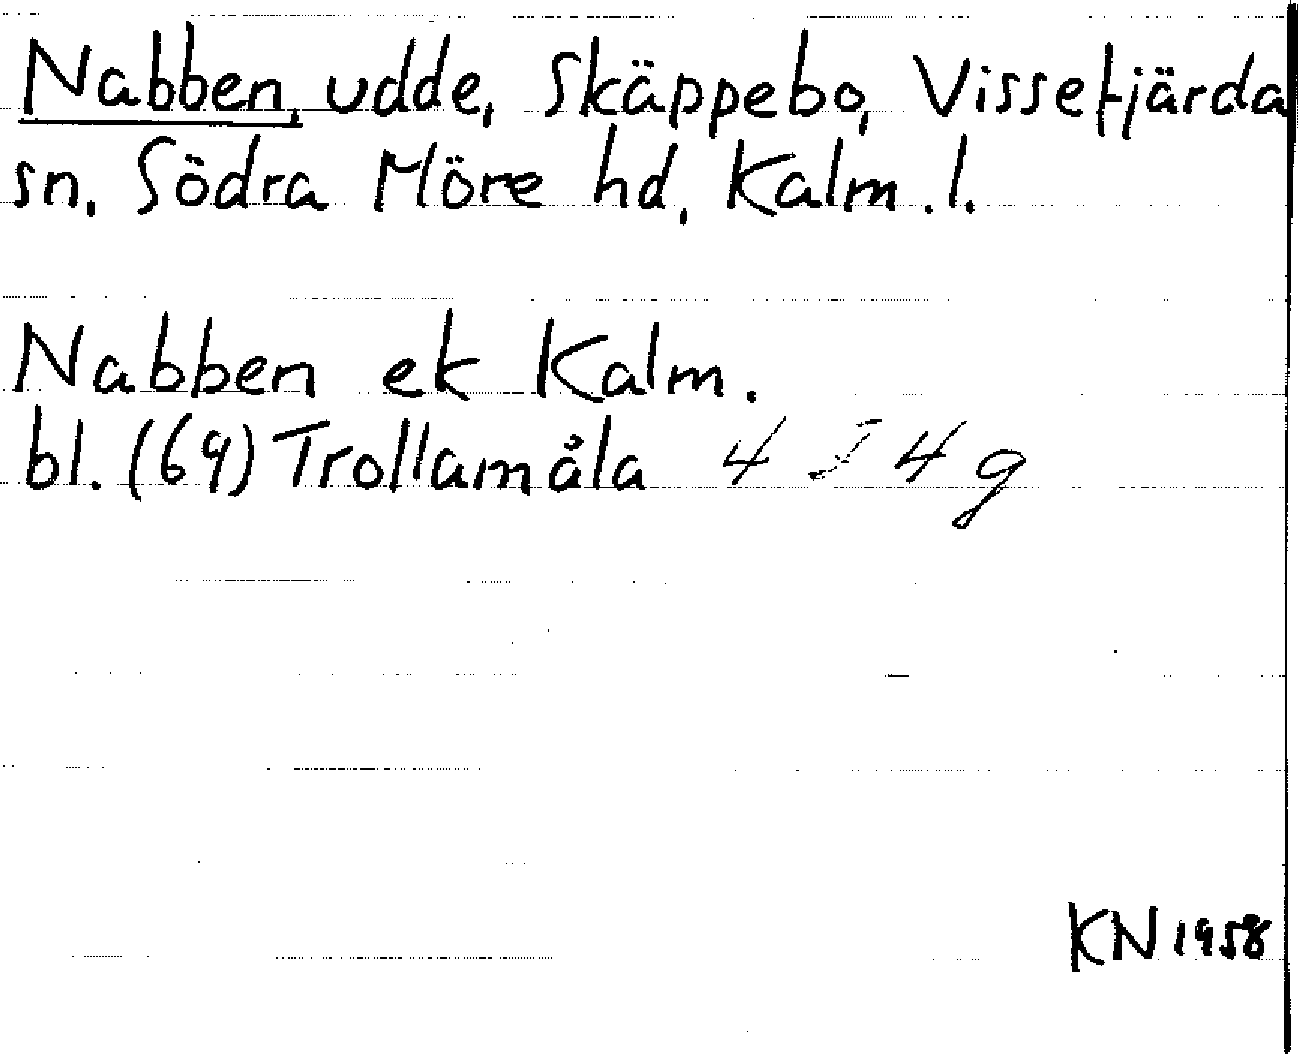 Nabben, udde, Skäppebo, Vissefjärda
sn, Södra Möre hd, Kalm. l.
Nabben ek Kalm.
bl. (69) Trollamåla 4 J 4 g
KN 1958